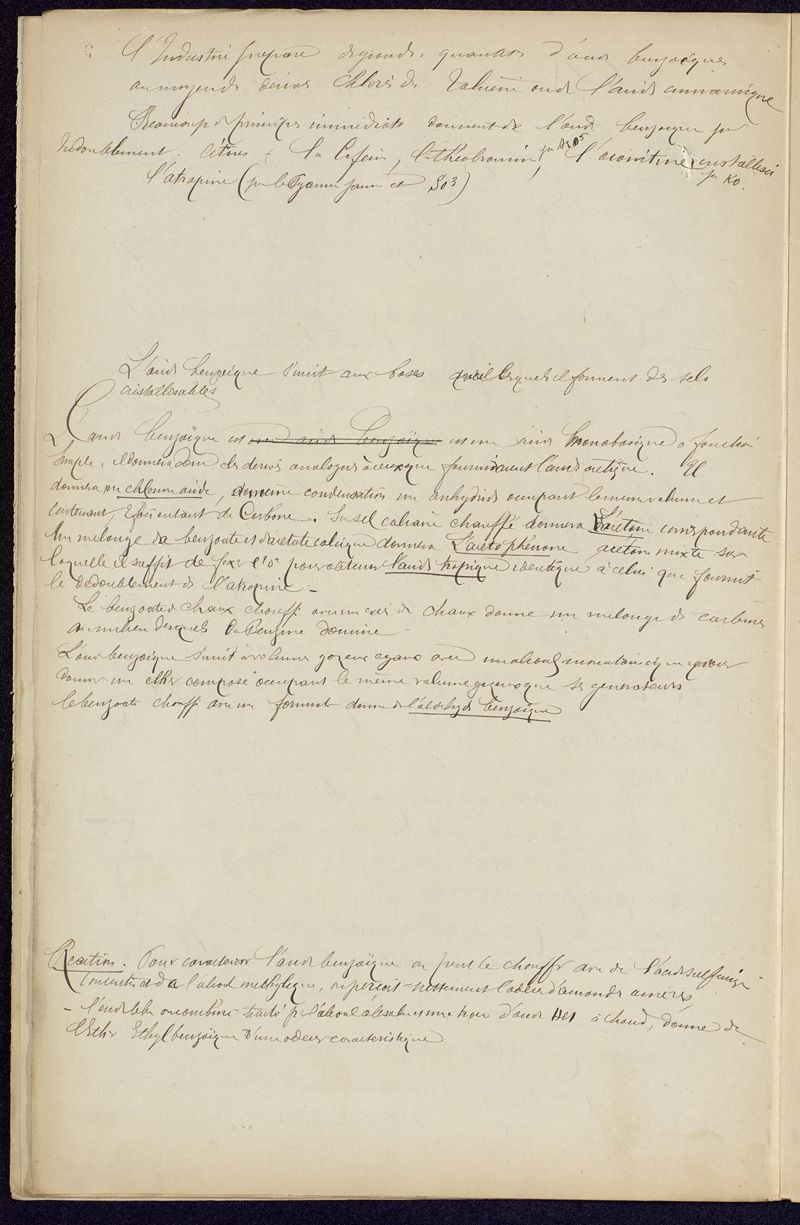 L'Industrie prepare de grandes quantités d'acide benzoïque
au moyen des dérivés chlorés du Toluène ou de l'acide cinnamique
Beaucoup de principes immédiats donnent de l'acide benzoïque par
dédoublement. Citons : La Caféine, la théobromine, par AzO5 l'aconitine cristallisée par KO.
l'atropine (par le Cyanure jaune et SO3)
L'acide benzoïque s'unit aux bases lesquels il forment des sels
cristallisables
L'acide benzoïque est un acide benzoïque est un acide monobasique à fonction
simple, il donnera donc des dérivés analogues à ceux que fournissent l'acide acétique. Il
donnera un chlorure acide, condensation un anhydride occupant le même volume et
contenant 2 fois autant de Carbone. Son sel calcaire chauffé donnera L'acétone correspondante
Un mélange de benzoate et d'acétate calcique donnera L'acétophénone acétone mixte sur
laquelle il suffit de fixer pour obtenir l'acide tropique identique à celui que fournit
le dédoublement de l'atropine -
Le benzoate de chaux chauffé avec un excès de chaux donne un mélange de carbures
au milieu desquels la Benzine domine -
L'acide benzoïque s'unit à volumes gazeux égaux avec un alcool monoatomique pour
donner un ether composé occupant le même volume gazeux que ses générateurs
le benzoate chauffé avec un formiate donne de l'aldehyde benzoïque
Réactions. Pour caractériser l'acide benzoïque on peut le chauffer avec de l'acide sulfurique
concentré et de l'alcool méthylique, on perçoit nettement l'odeur d'amandes amères,
- l'acide libre ou combiné traité par l'alcool absolu et une trace d'acide HCl à chaud, donne de
l'Ether Ethylbenzoïque d'une odeur caractéristique